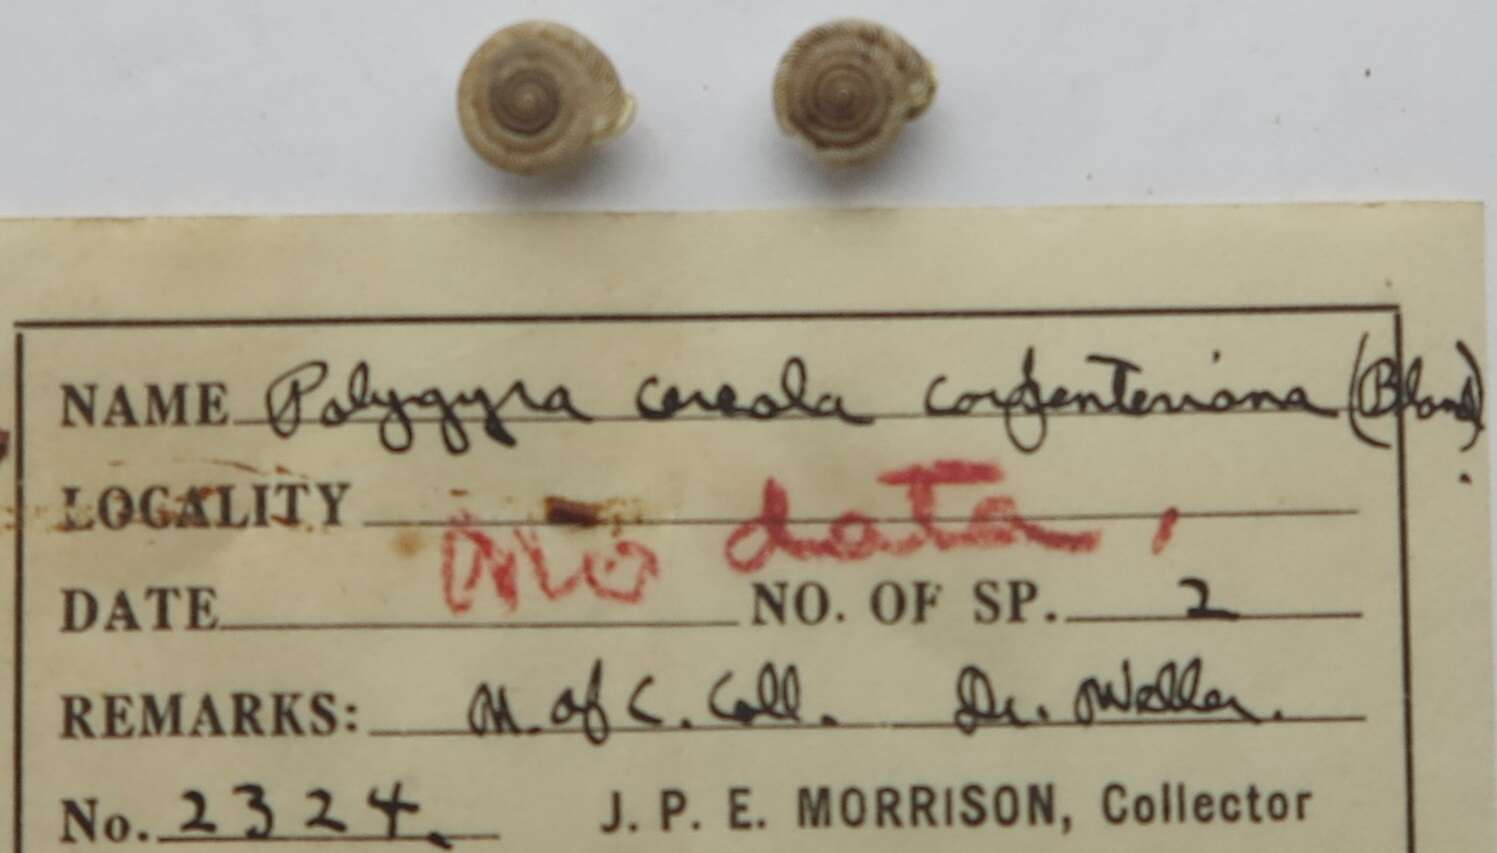 NAME Polygyra cereola carpenteriana (Bland)
LOCALITY No data,
DATE NO. OF SP. 2
REMARKS: M. of C. Coll. Dr. Weller.
No. 2324. J. P. E. MORRISON, Collector